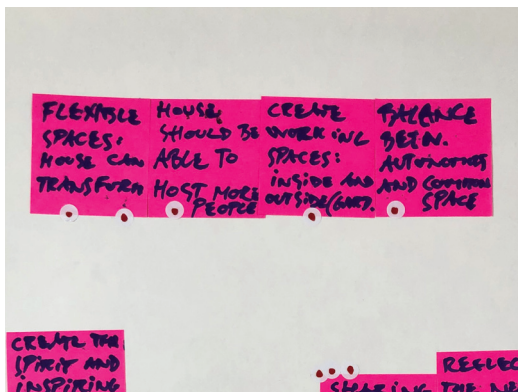 FLEXIBLE
SPACES:
HOUSE CAN
TRANSFORM
HOUSE
SHOULD BE
ABLE TO
HOST MORE
PEOPLE
CREATE
WORKING
SPACES:
INSIDE AND
OUTSIDE/GARD.
BALANCE
BETW.
AUTONOMOUS
AND COMMON
SPACE
CREATE THE
SPIRIT AND
INSPIRING
SHARING THE NE
REFLEC